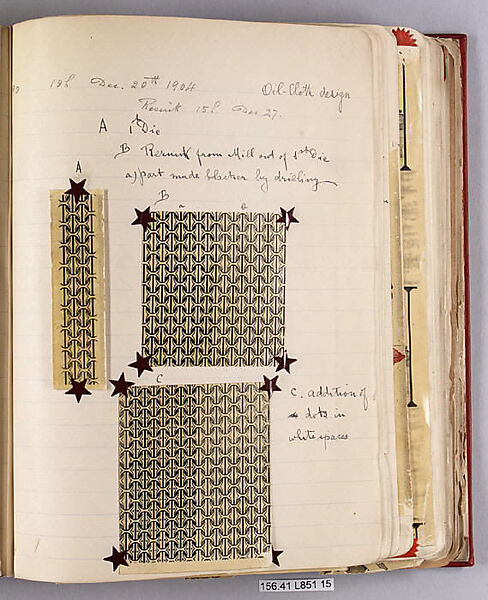 19h Dec. 20th 1904 Oil-Cloth design
Rework 15h Dec 27.
A 1st Die
B Rework from Mill out of 1st Die
a) part made blacker by drilling
A
B
a b
C
C. addition of
dots in
white spaces
156.41 L851 15